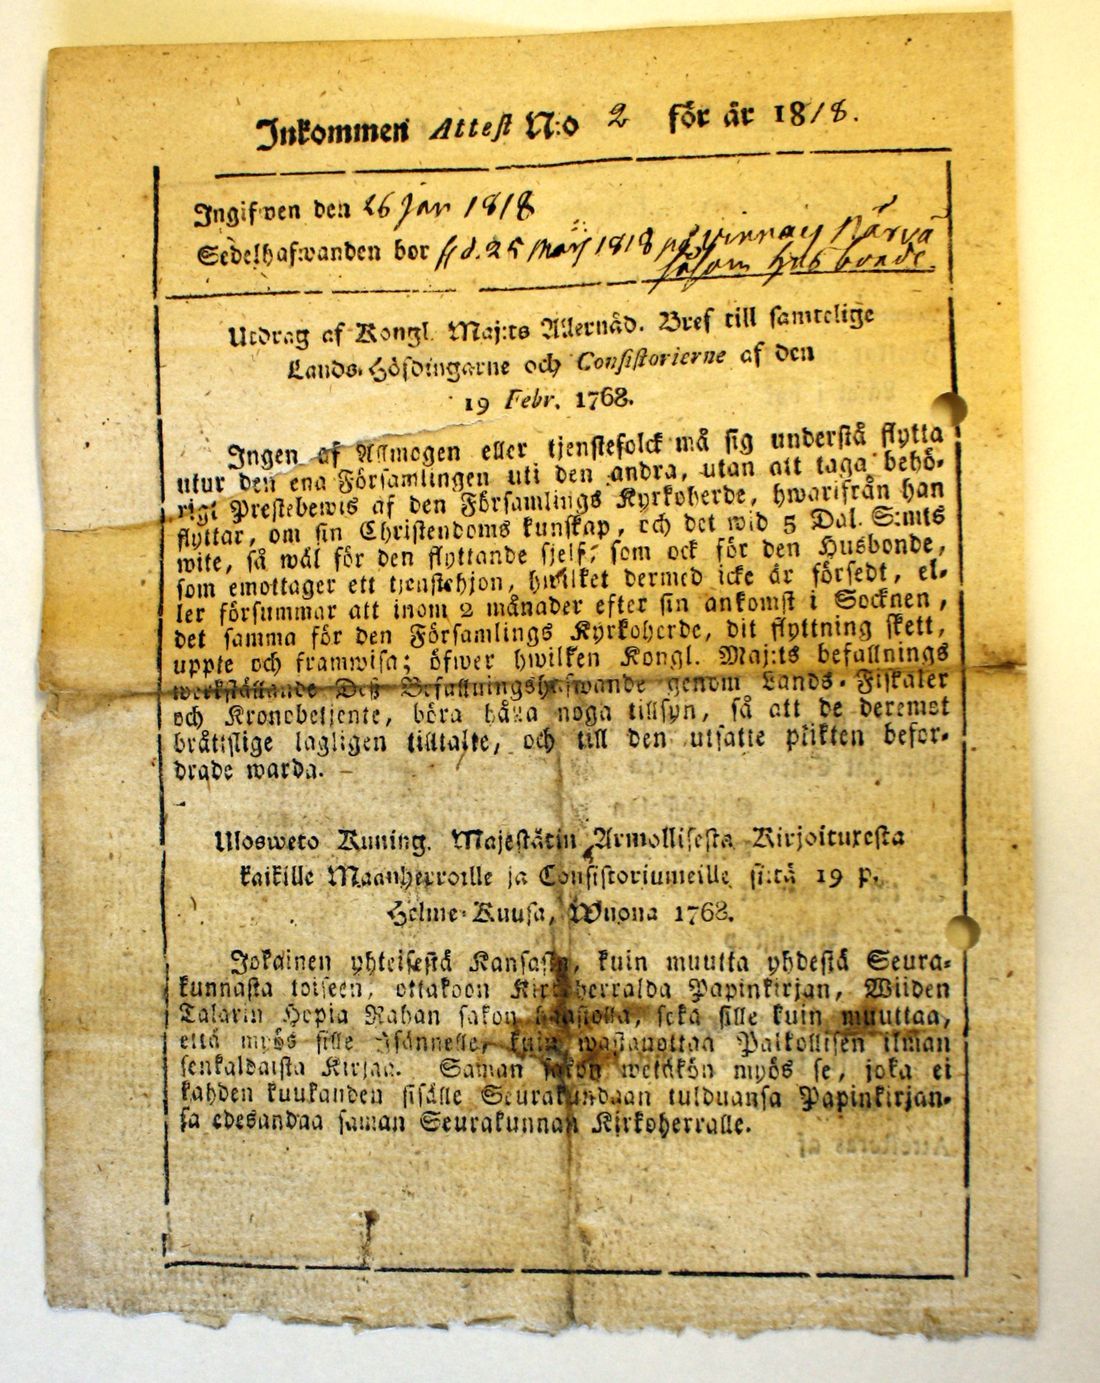 Inkommen Attest N:o 2 för år 1818.
Ingifwen den 26 Jan 1818
Sedelhafwanden bor d. 25 1818 på Närvä
såsom husbonde.
Utdrag af Kongl. Maj:ts Allernåd. Bref till samtelige
Lands-Höfdingarne och Consistorierne af den
19 Febr. 1768.
Ingen af Allmogen eller tjenstefolck må sig understå flytta
utur den ena Församlingen uti den andra, utan att taga behö-
rigt Prestebewis af den Församlings Kyrkoherde, hwarifrån han
flyttar, om sin Christendoms kunskap, och det wid 5 Dal. S:mts
wite, så wäl för den flyttande sjelf, som ock för den Husbonde,
som emottager ett tjenstehjon, hwilket dermed icke är försedt, el-
ler försummar att inom 2 månader efter sin ankomst i Socknen,
det samma för den Församlings Kyrkoherde, dit flyttning skett,
uppte och framwisa; öfwer hwilken Kongl. Maj:ts befallnings
werkställande Deß Befallningshafwande genom Lands-Fiskaler
och Kronobetjente, böra hafwa noga tillsyn, så att de deremot
bråttslige lagligen tilltalte, och till den utsatte plikten befor-
drade warda.
Ulosweto Kuning. Majestätin Armollisesta Kirjoituxesta
kaikille Maanherroille ja Consistoriumeille siitä 19 p.
Helme-Kuusa, Wuona 1768.
Jokainen yhteisestä Kansasta, kuin muutta yhdestä Seura-
kunnasta toiseen, ottakoon Kirkkoherralda Papinkirjan, Wiiden
Talarin Hopia Rahan sakon haastolla, sekä sille kuin muuttaa,
että myös sille Isännelle, kuin wastanottaa Palkollisen ilman
senkaldaista Kirjaa. Saman sakon wetäkön myös se, joka ei
kahden kuukauden sisälle Seurakundaan tulduansa Papinkirjan-
sa edesandaa saman Seurakunnan Kirkoherralle.